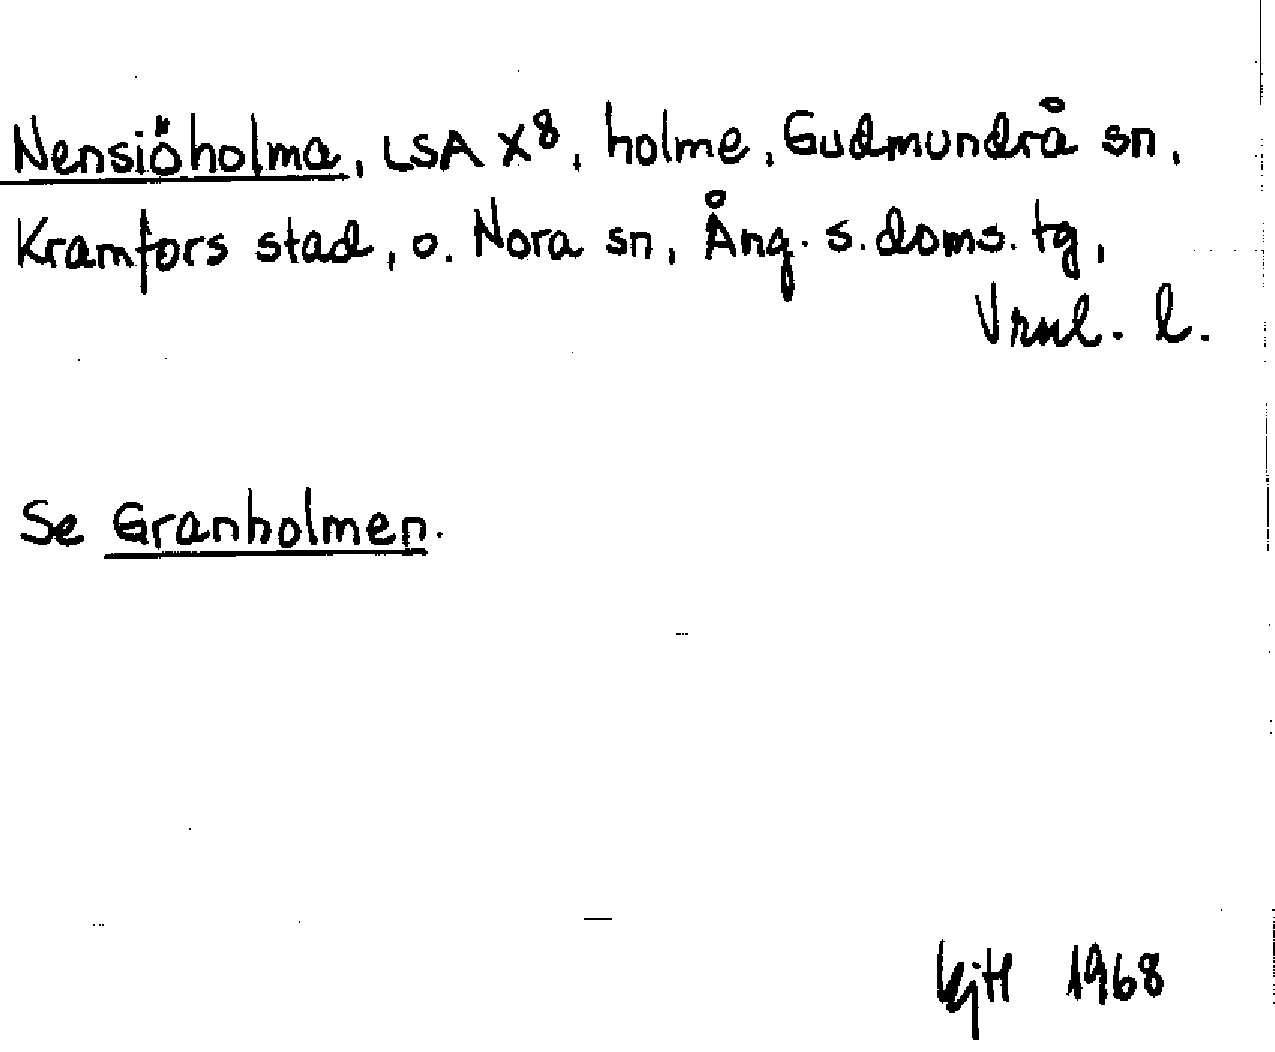 Nensiöholma, LSA X8, holme, Gudmundrå sn,
Kramfors stad, o. Nora sn, Ång. s. doms. tg,
Vrnl. l.
Se Granholmen.
KjH 1968